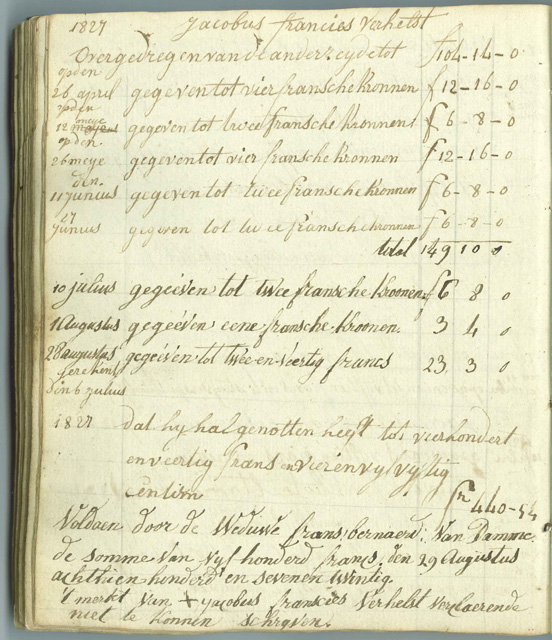 1827 Jacobus francies verhelst
Overgedregen van de ander zeyde tot f 104-14-0
op den
26 april gegeven tot vier fransche kronnen f 12-16-0
op den meye
12 gegeven tot twee fransche kronnen f 6-8-0
op den
26 meye gegeven tot vier fransche kronnen f 12-16-0
den
11 junius gegeven tot twee fransche kronnen f 6-8-0
27
junius gegeven tot twee fransche kronnen f 6-8-0
total 149 10 0
10 julius gegeeven tot twee fransche kroonen f 6 8 0
1 Augustus gegeeven eene fransche kroonen 3 4 0
28 augustus gegeeven tot twee en veertig francs 23 3 0
den 6 julius
1827 dat hy hal genotten heeft tot vierhondert
en veertig frans en vier en vyfvyftig
centim
fr 440-54
Voldaen door de Weduwe frans: bernaerd: Van Damme
de somme van vyf honderd francs den 29 Augustus
achthien honderd en sevenen twintig.
't merkt van + jacobus francies verhelst verclaerende
niet te konnen schryven.